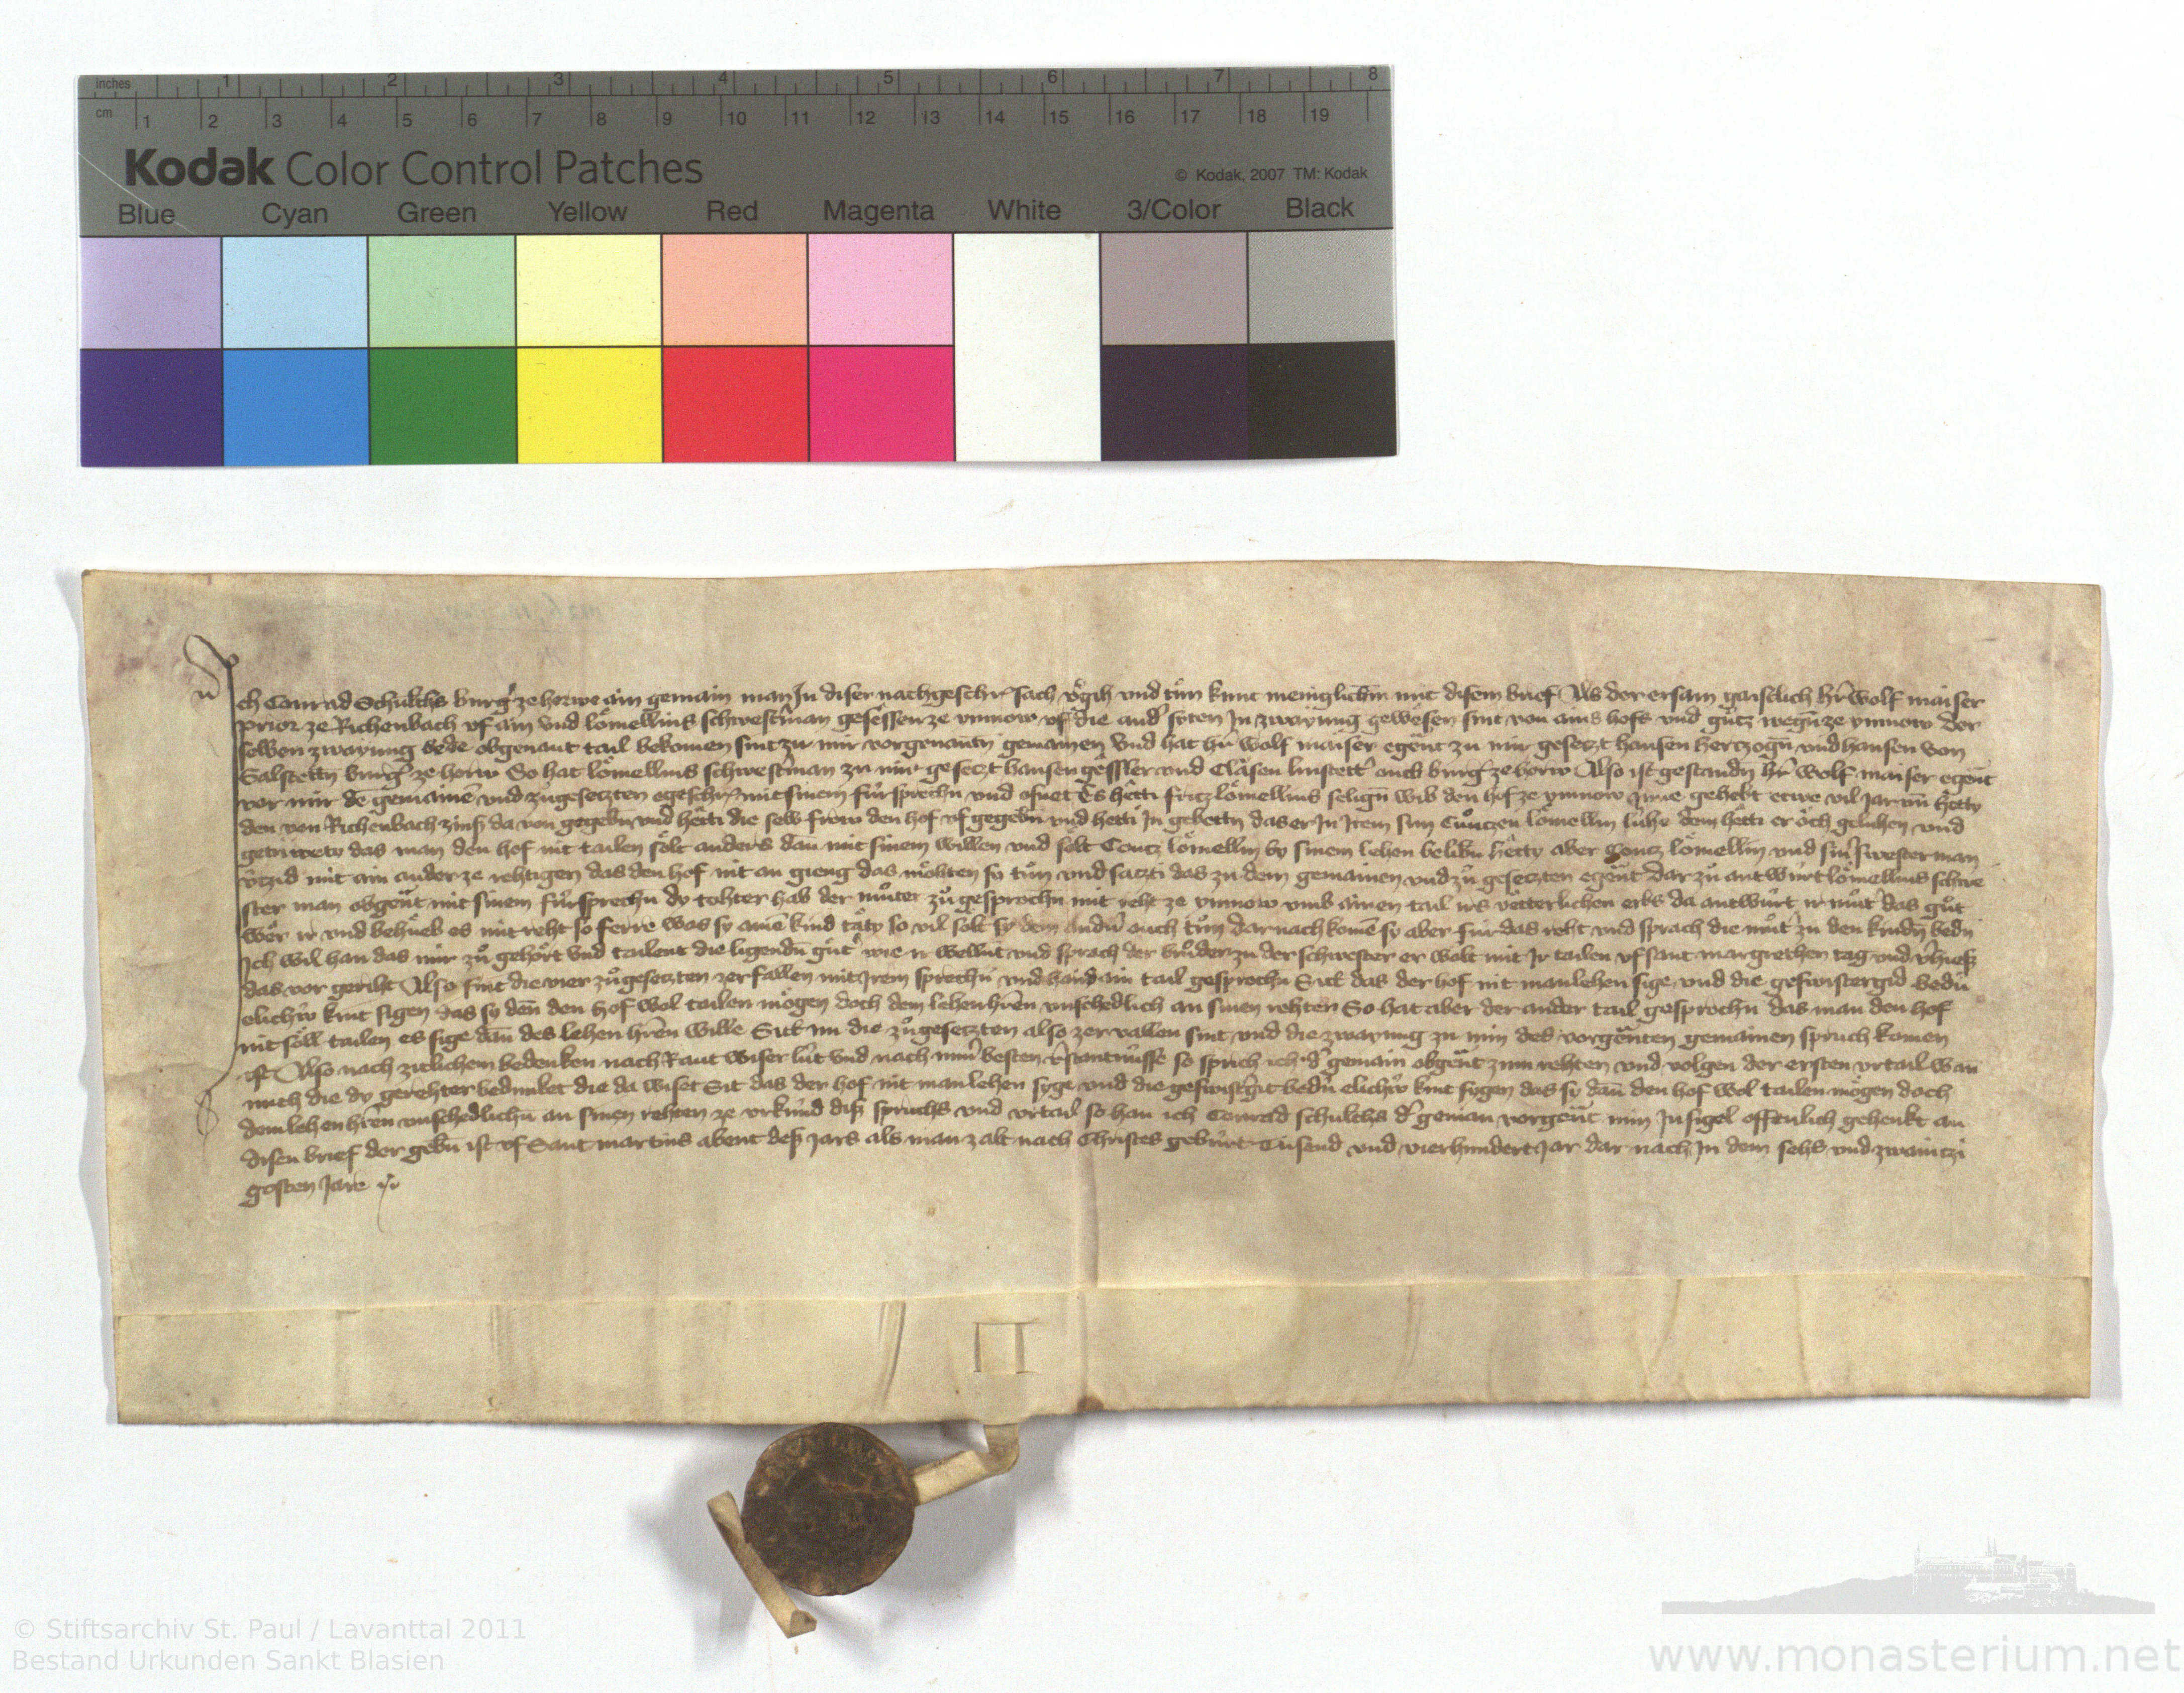 inches 1 2 3 4 5 6 7 8
cm 1 2 3 4 5 6 7 8 9 10 11 12 13 14 15 16 17 18 19
Kodak Color Control Patches
© Kodak, 2007 TM: Kodak
Blue Cyan Green Yellow Red Magenta White 3/Color Black
Ich Conrad Schulths burg' ze horwe ain gemain man In diser nachgeschr' sach v'gih vnd tůn kunt menglichem mit disem brief Als der ersam gaistlich h'r wolf maiser
prior ze Richenbach vf ain vnd lömellins schwest'man gesessen ze ymnow vf die and' syten In zwayung gewesen sint von ains hofs vnd gůtz wegen ze ymnow der
selben zwayung bede obgenant tail bekomen sint zu mir vorgenanten gemainen Vnd hat h'r wolf maiser egent zu mir gesetzt hansen hertzogen vnd hansen von
Salstetten burg' ze horw So hat lömellins schwest'man zu mir gesetzt hansen gessler vnd Clasen linstett' auch burg' ze horw Also ist gestanden h'r wolf maiser egent
vor mir de gemaine vnd zůgesetzten egeschr' mit sinem fürsprechen vnd ofnet Es hetti fritz lömellins seligen wib den hof ze ymnow Inne gehebt etwe vil Jar vn hetty
den von Richenbach zinß da von gegeben vnd hetti die selb frow den hof vf gegeben vnd hetti In gebetten das er In Irem sun Cůntzen lömellin lühe dem hetti er öch gelühen vnd
getruwete das man den hof nit tailen sölt anders dan mit sinem willen vnd sölt Contz lömellin by sinem lehen beliben hetty aber Contz lömellin vnd sin' swester man
vtzid mit ain ander ze rehtigen das den hof nit an gieng das möhten sy tůn vnd satzti das zu dem gemainen vnd zů gesetzten egent Dar zů antwürt lömellins schwe
ster man obgent mit sinem fürsprechen dy tohter hab der můter zů gesprochen mit reht ze ymnow vmb ainen tail irs vetterlichen erbs da antwürt ir můt' das gůt
wer ir vnd behüeb es mit reht so ferre was sy aine kind täty so vil sölt sy dem andern auch tůn dar nach kome sy aber für das reht vnd sprach die můt' zu den kinden beden
Ich wil han das mir zů gehört vnd tailent die ligenden güt' wie ir wellint vnd sprach der brůder zu der schwester er wölt mit Ir tailen vf sant margrethen tag vnd v'hieß
das vor geriht Also sint die vier zůgesetzten zerfallen mit Irem sprechen vnd haid ain tail gesprochen Sid das der hof nit manlehen sige vnd die geswistergid bedü
elichü kint sigen das sy den den hof wol tailen mögen doch dem lehenhren vnschedlich an sinen rehten So hat aber der ander tail gesprochen das man den hof
nit söll tailen es sige dan des lehen hren wille Sid nu die zůgesetzten also zervallen sint vnd die zwayung zu min des vorgenten gemainen spruch komen
ist Also nach zitlichem bedenken nach Raut wiser lüt vnd nach min' besten v'stantnüsse so sprich ich d' gemain obgent zum rehten vnd volgen der ersten vrtail wan
mich die dy gerehter bedunket die da wiset Sit das der hof nit manlehen syge vnd die geswist'git bedü elichü kint sygen das sy dan den hof wol tailen mögen doch
dem lehen hren vnschedlichen an sinen rehten ze vrkünd diß spruchs vnd vrtail so han ich Conrad schulths d' gemain vorgent min Insigel offenlich gehenkt an
disen brief der geben ist vf Sant martins abent deß Jars als man zalt nach Christes gebürt Tusend vnd vierhundert Jar dar nach In dem sehs vnd zwaintzi
gosten Jare
© Stiftsarchiv St. Paul / Lavanttal 2011
Bestand Urkunden Sankt Blasien
www.monasterium.net